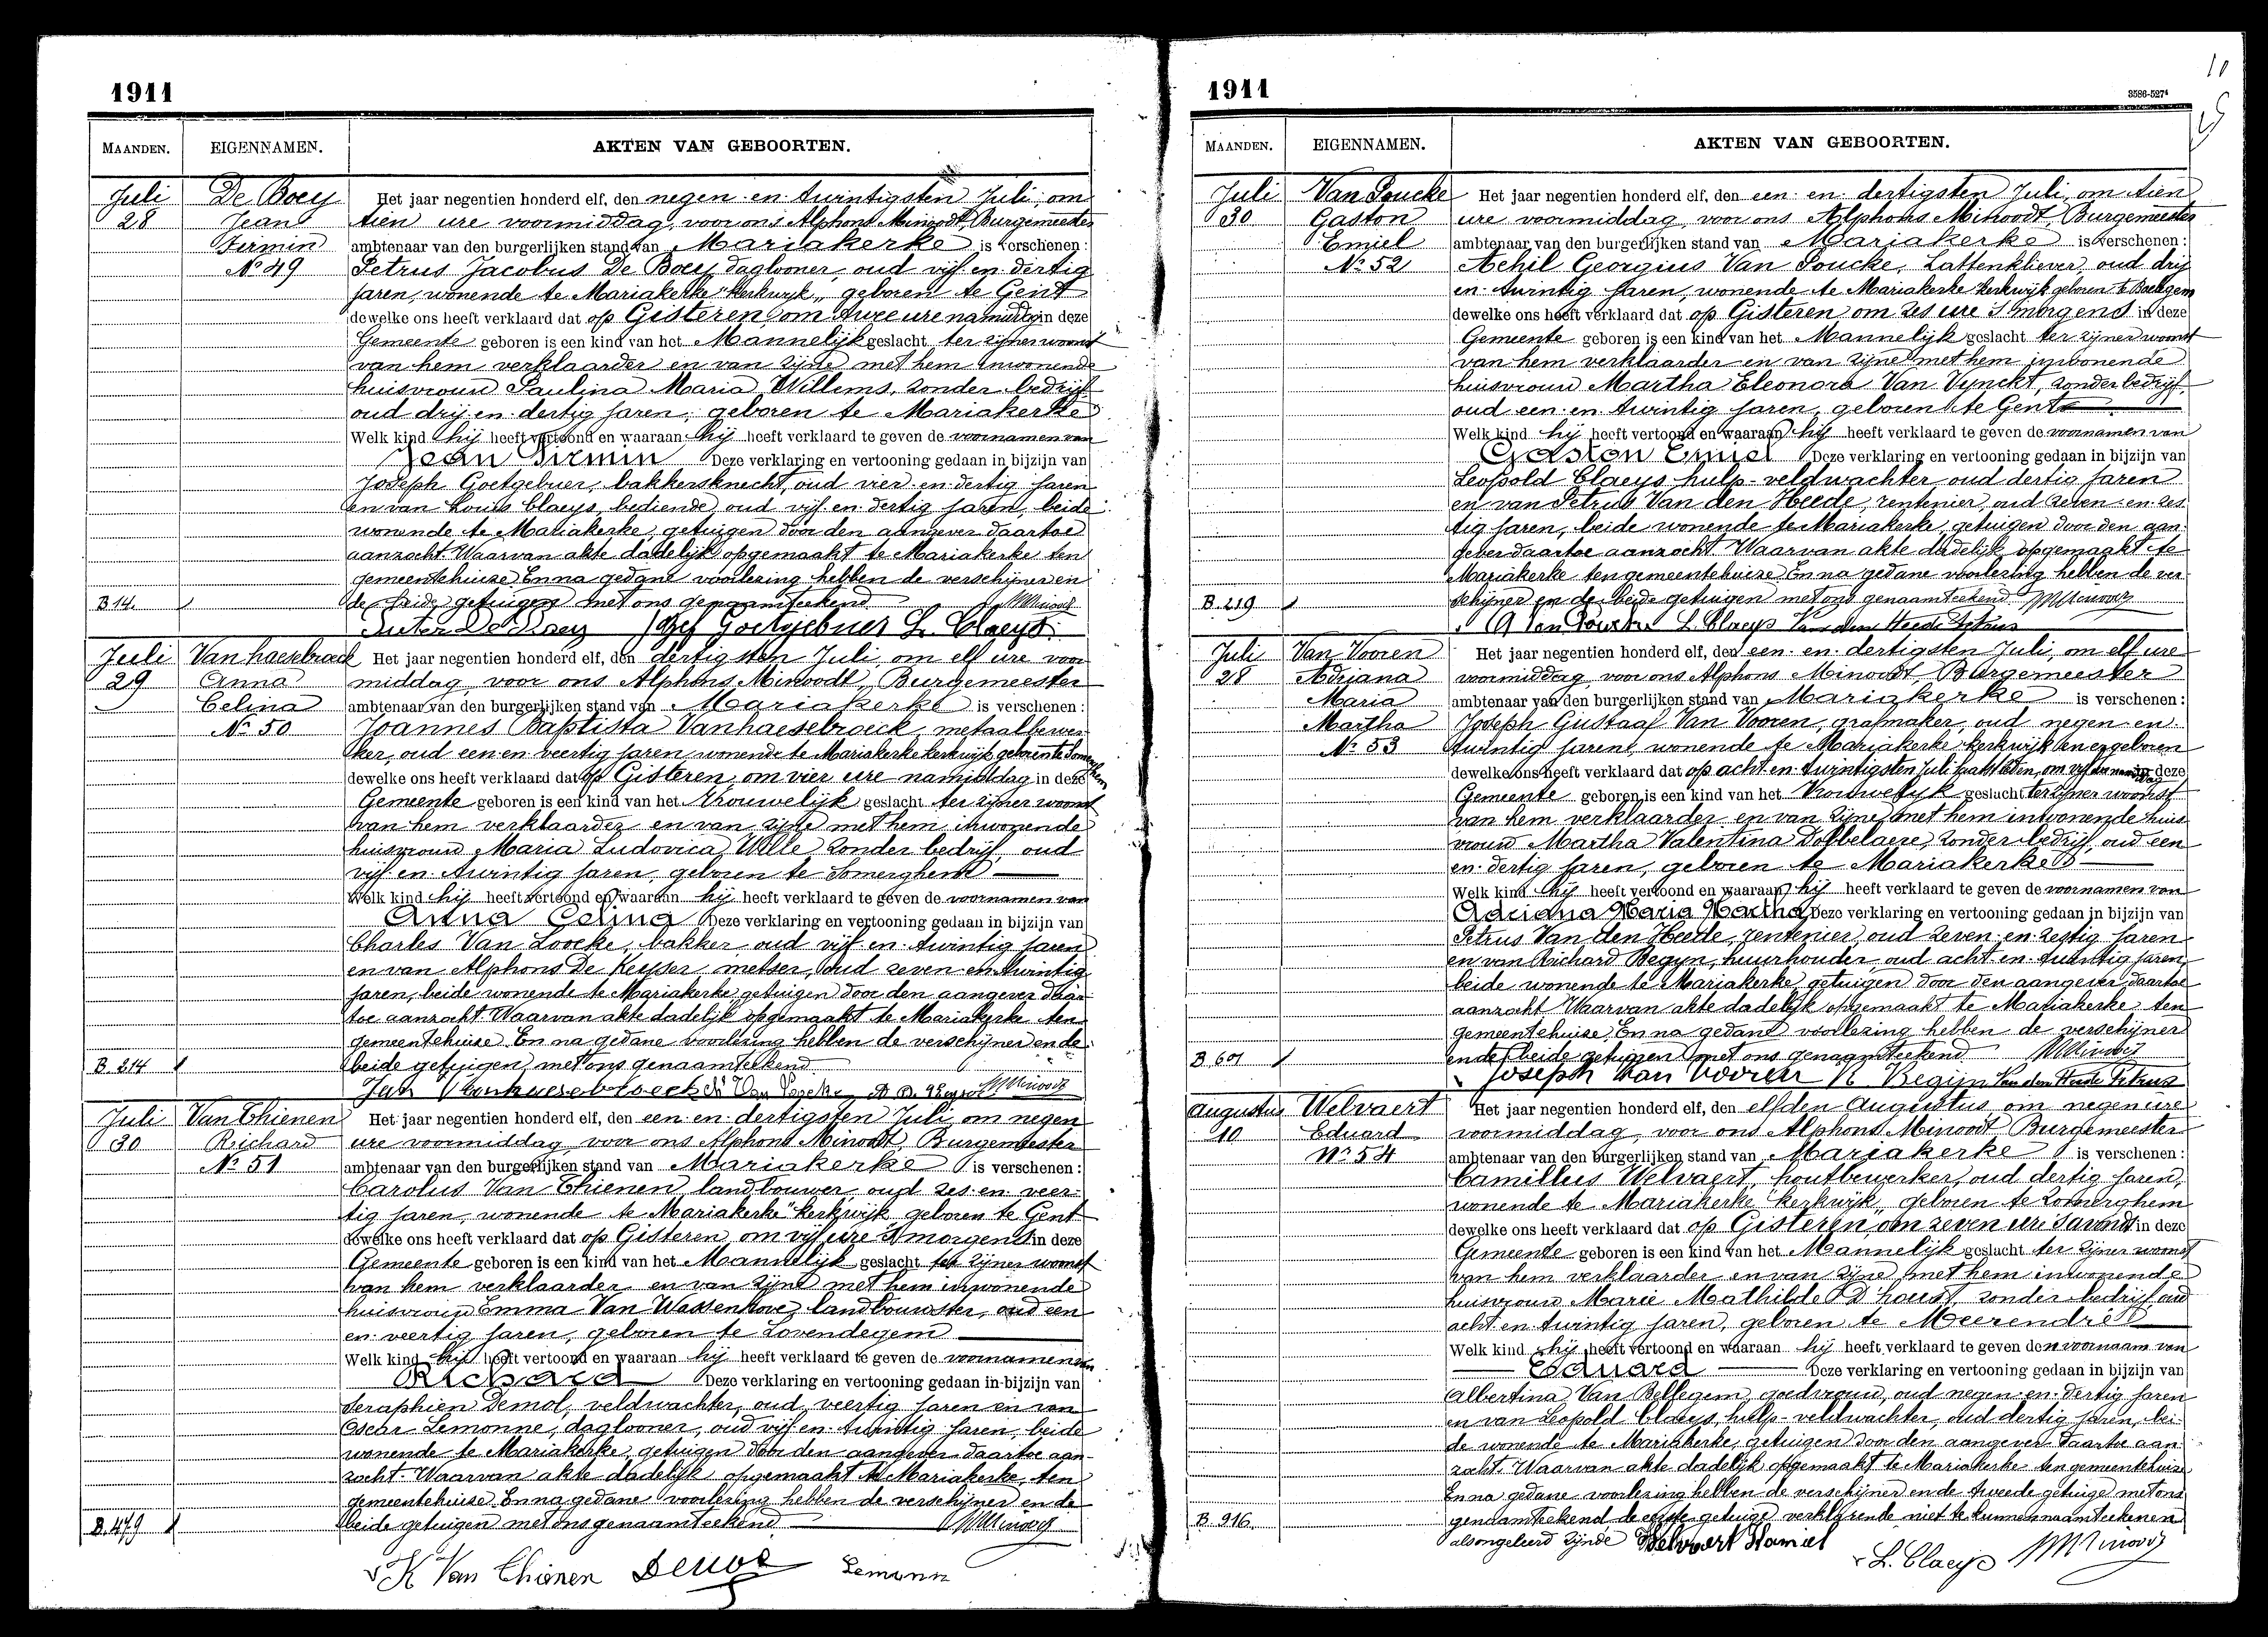 1911
MAANDEN. EIGENNAMEN. AKTEN VAN GEBOORTEN.
Juli De Boey Het jaar negentien honderd elf, den negen en twintigsten Juli, om
28 Jean tien ure voormiddag, voor ons Alphons Minoodt, Burgemeester
Firmin ambtenaar van den burgerlijken stand van Mariakerke is verschenen:
No 49 Petrus Jacobus De Boey, daglooner, oud vijf en dertig
jaren, wonende te Mariakerke "kerkwijk" geboren te Gent
dewelke ons heeft verklaard dat op Gisteren, om twee ure namiddag in deze
Gemeente geboren is een kind van het Mannelijk geslacht ter zijner woonst
van hem verklaarder en van zijne met hem inwonende
huisvrouw Paulina Maria Willems, zonder bedrijf
oud drij en dertig jaren, geboren te Mariakerke
Welk kind hij heeft vertoond en waaraan hij heeft verklaard te geven de voornamen van
Jean Firmin Deze verklaring en vertooning gedaan in bijzijn van
Joseph Goetgebuer, bakkersknecht, oud vier en dertig jaren
en van Louis Claeys, bediende, oud vijf en dertig jaren, beide
wonende te Mariakerke, getuigen door den aangever daartoe
aanzocht. Waarvan akte dadelijk opgemaakt te Mariakerke ten
gemeentehuize. En na gedane voorlezing hebben de verschijner en
B 14. de beide getuigen met ons genaamteekend AMinoodt
De Boey Jozef Goetgebuer L. Claeys
Juli Vanhaesebroeck Het jaar negentien honderd elf, den dertigsten Juli, om elf ure voor
29 Anna middag, voor ons Alphons Minoodt, Burgemeester
Celina ambtenaar van den burgerlijken stand van Mariakerke is verschenen:
No 50 Joannes Baptista Vanhaesebroeck, metaalbewer
ker, oud een en veertig jaren wonende te Mariakerke kerkwijk geboren te Somerghem
dewelke ons heeft verklaard dat op Gisteren, om vier ure namiddag in deze
Gemeente geboren is een kind van het Vrouwelijk geslacht ter zijner woonst
van hem verklaarder en van zijne met hem inwonende
huisvrouw Maria Ludovica Wille zonder bedrijf, oud
vijf en twintig jaren, geboren te Somerghem
Welk kind hij heeft vertoond en waaraan hij heeft verklaard te geven de voornamen van
Anna Celina Deze verklaring en vertooning gedaan in bijzijn van
Charles Van Loocke, bakker oud vijf en twintig jaren
en van Alphons De Keyser, metser, oud zeven en twintig
jaren, beide wonende te Mariakerke, getuigen door den aangever daar
toe aanzocht. Waarvan akte dadelijk opgemaakt te Mariakerke ten
gemeentehuize. En na gedane voorlezing hebben de verschijner en de
B 214 beide getuigen met ons genaamteekend
Jan Vanhaesebroeck Van AMinoodt
Juli Van Thienen Het jaar negentien honderd elf, den een en dertigsten Juli om negen
30 Richard ure voormiddag, voor ons Alphons Minoodt, Burgemeester
No 51 ambtenaar van den burgerlijken stand van Mariakerke is verschenen:
Carolus Van Thienen, landbouwer, oud zes en veer
tig jaren, wonende te Mariakerke "kerkwijk geboren te Gent
dewelke ons heeft verklaard dat op Gisteren, om vijf ure 's morgens in deze
Gemeente geboren is een kind van het Mannelijk geslacht ter zijner woonst
van hem verklaarder en van zijne met hem inwonende
huisvrouw Emma Van Wassenhove, landbouwster, oud een
en veertig jaren, geboren te Lovendegem
Welk kind hij heeft vertoond en waaraan hij heeft verklaard te geven de voornamen van
Richard Deze verklaring en vertooning gedaan in bijzijn van
Seraphien Demol, veldwachter, oud veertig jaren en van
Oscar Lemonne, daglooner, oud vijf en twintig jaren, beide
wonende te Mariakerke, getuigen door den aangever daartoe aan
zocht. Waarvan akte dadelijk opgemaakt te Mariakerke, ten
gemeentehuize. En na gedane voorlezing hebben de verschijner en de
B. 479 beide getuigen met ons genaamteekend AMinoodt
K Van Thienen Demol
1911
3586-527
MAANDEN. EIGENNAMEN. AKTEN VAN GEBOORTEN.
Juli Van Poucke Het jaar negentien honderd elf, den een en dertigsten Juli, om tien
30 Gaston ure voormiddag, voor ons Alphons Minoodt, Burgemeester
Emiel ambtenaar van den burgerlijken stand van Mariakerke is verschenen:
No 52 Achil Georgius Van Poucke, Lattenkliever, oud drij
en twintig jaren, wonende te Mariakerke kerkwijk geboren te
dewelke ons heeft verklaard dat op Gisteren om zes ure 's morgens in deze
Gemeente geboren is een kind van het Mannelijk geslacht ter zijner woonst
van hem verklaarder en van zijne met hem inwonende
huisvrouw Martha Eleonora Van Vynckt, zonder bedrijf
oud een en twintig jaren, geboren te Gent
Welk kind hij heeft vertoond en waaraan hij heeft verklaard te geven de voornamen van
Gaston Emiel Deze verklaring en vertooning gedaan in bijzijn van
Leopold Claeys hulp-veldwachter oud dertig jaren
en van Petrus Van den Heede, rentenier, oud zeven en zes
tig jaren, beide wonende te Mariakerke, getuigen door den aan
gever daartoe aanzocht. Waarvan akte dadelijk opgemaakt te
Mariakerke ten gemeentehuize. En na gedane voorlezing hebben de ver
B. 219 schijner en de beide getuigen met ons genaamteekend AMinoodt
A Van Poucke L. Claeys Van den Heede Petrus
Juli Van Vooren Het jaar negentien honderd elf, den een en dertigsten Juli, om elf ure
28 Adriana voormiddag, voor ons Alphons Minoodt, Burgemeester
Maria ambtenaar van den burgerlijken stand van Mariakerke is verschenen:
Martha Joseph Gustaaf Van Vooren, grafmaker, oud negen en
No 53 twintig jaren, wonende te Mariakerke kerkwijk en er geboren
dewelke ons heeft verklaard dat op acht en twintigsten Juli laatstleden, om vijf ure namiddag in deze
Gemeente geboren is een kind van het Vrouwelijk geslacht ter zijner woonst
van hem verklaarder en van zijne met hem inwonende huis
vrouw Martha Valentina Dobbelaere, zonder bedrijf, oud een
en dertig jaren, geboren te Mariakerke
Welk kind hij heeft vertoond en waaraan hij heeft verklaard te geven de voornamen van
Adriana Maria Martha Deze verklaring en vertooning gedaan in bijzijn van
Petrus Van den Heede, rentenier, oud zeven en zestig jaren
en van Richard Begyn, huurhouder oud acht en twintig jaren,
beide wonende te Mariakerke, getuigen door den aangever daartoe
aanzocht Waarvan akte dadelijk opgemaakt te Mariakerke ten
gemeentehuize. En na gedane voorlezing hebben de verschijner
B 601 en de beide getuigen met ons genaamteekend AMinoodt
Joseph Van Vooren R Begijn Van den Heede Petrus
Augustus Welvaert Het jaar negentien honderd elf, den elfden Augustus, om negen ure
10 Eduard voormiddag, voor ons Alphons Minoodt Burgemeester
No 54 ambtenaar van den burgerlijken stand van Mariakerke is verschenen:
Camillus Welvaert, houtbewerker, oud dertig jaren,
wonende te Mariakerke "kerkwijk" geboren te Zomerghem
dewelke ons heeft verklaard dat op Gisteren, om zeven ure 's avonds in deze
Gemeente geboren is een kind van het Mannelijk geslacht ter zijner woonst
van hem verklaarder en van zijne met hem inwonende
huisvrouw Marie Mathilde D'hoest, zonder bedrijf, oud
acht en twintig jaren, geboren te Meerendré
Welk kind hij heeft vertoond en waaraan hij heeft verklaard te geven den voornaam van
Eduard Deze verklaring en vertooning gedaan in bijzijn van
Albertina Van Bellegem, goedvrouw, oud negen en dertig jaren
en van Leopold Claeys, hulp-veldwachter, oud dertig jaren, bei
de wonende te Mariakerke, getuigen door den aangever daartoe aan
zocht. Waarvan akte dadelijk opgemaakt te Mariakerke ten gemeentehuize
En na gedane voorlezing hebben de verschijner en de tweede getuige met ons
B. 916. genaamteekend de eerste getuige verklarende niet te kunnen naamteekenen
als ongeleerd zijnde Welvaert Kamiel
L. Claeys AMinoodt